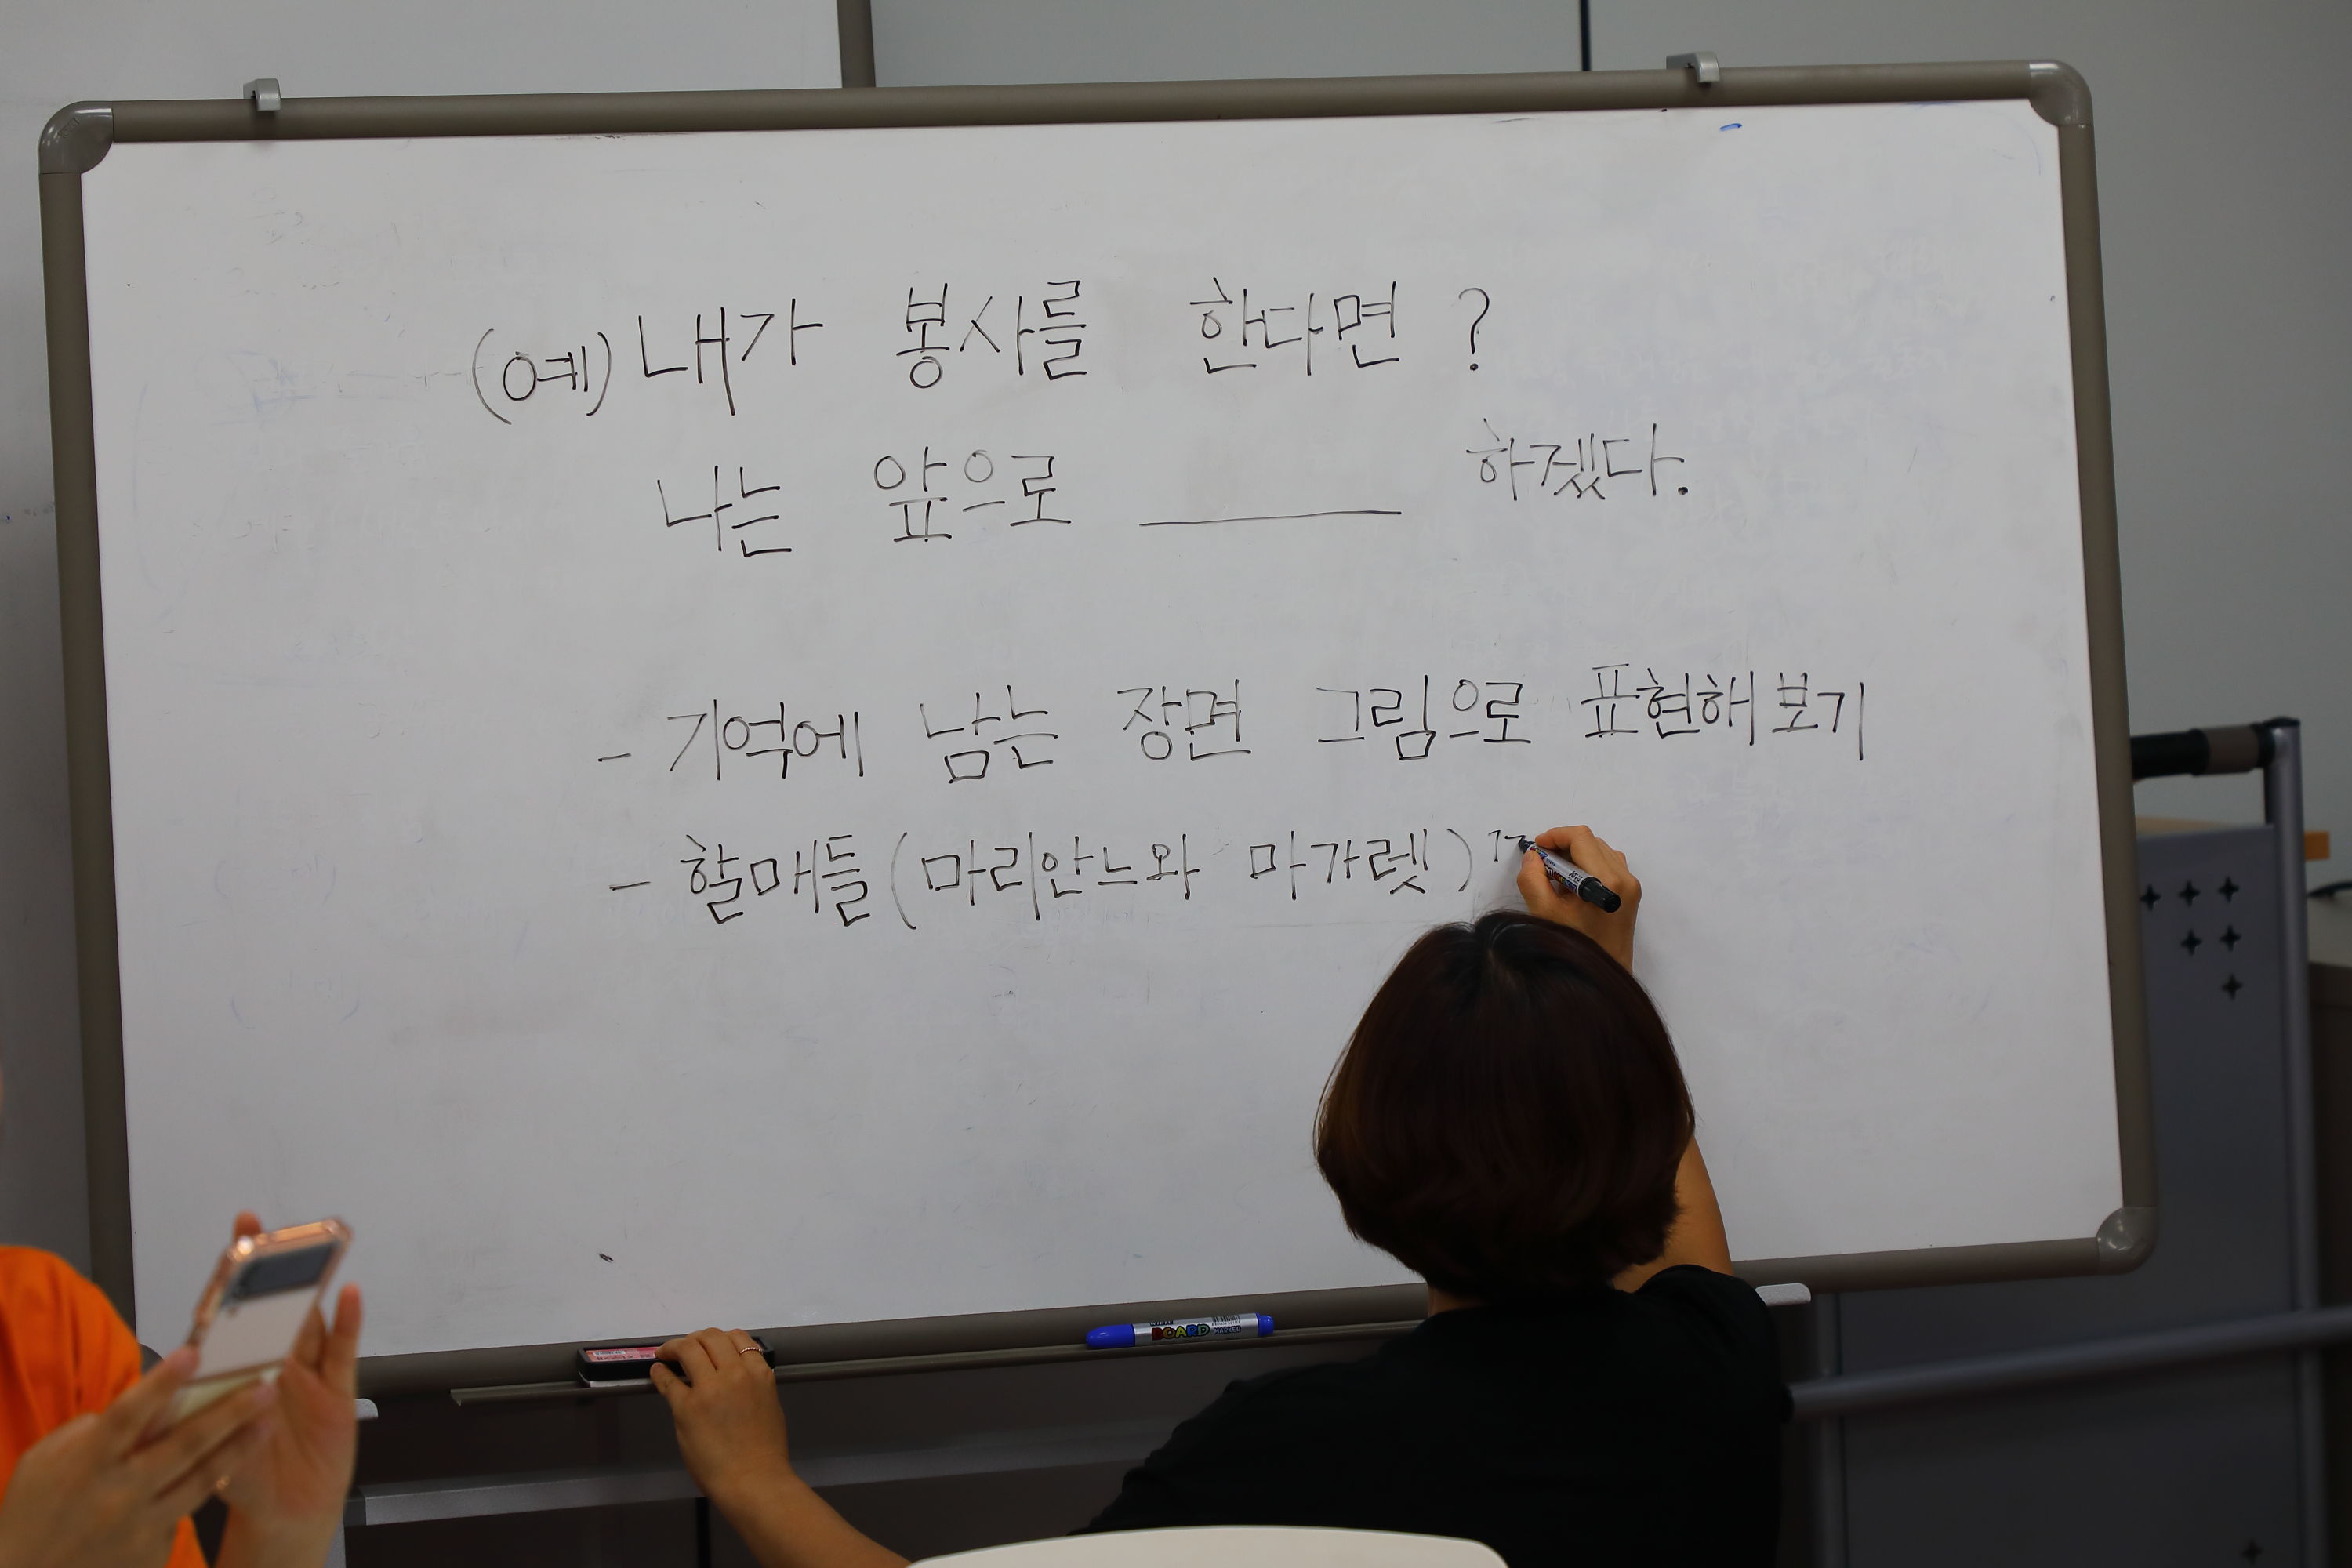 (예) 내가 봉사를 한다면 ?
나는 앞으로 ________ 하겠다.
- 기억에 남는 장면 그림으로 표현해 보기
- 할매들 (마리안느와 마가렛)
BOARD MARKER